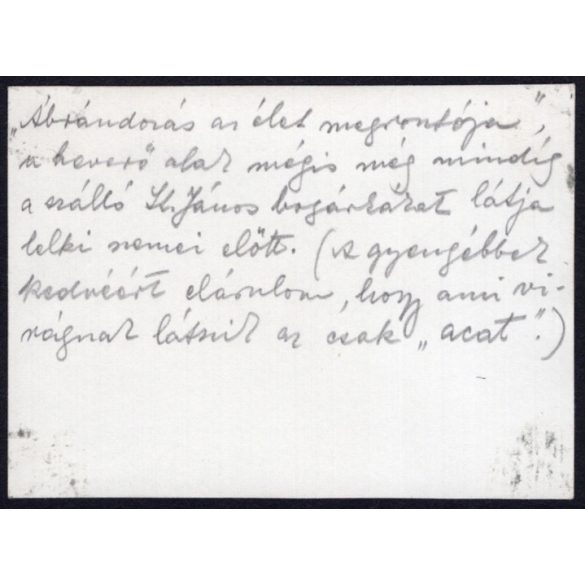 „Ábrándozás az élet megrontója",
a heverő alak mégis még mindig
a szálló Sz. János bogárkákat látja
lelki szemei előtt. (A gyengébbek
kedvéért elárulom, hogy ami vi-
rágnak látszik az csak „acat".)